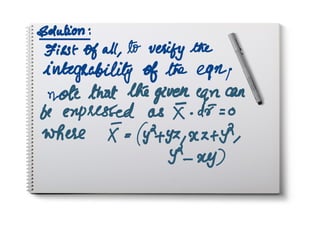 Solution:
First of all, to verify the
integrability of the eqn,
note that the given eqn can
be expressed as X̄ · dr̄ = 0
where X̄ = (y²+yz, xz+y²,
y² - xy)